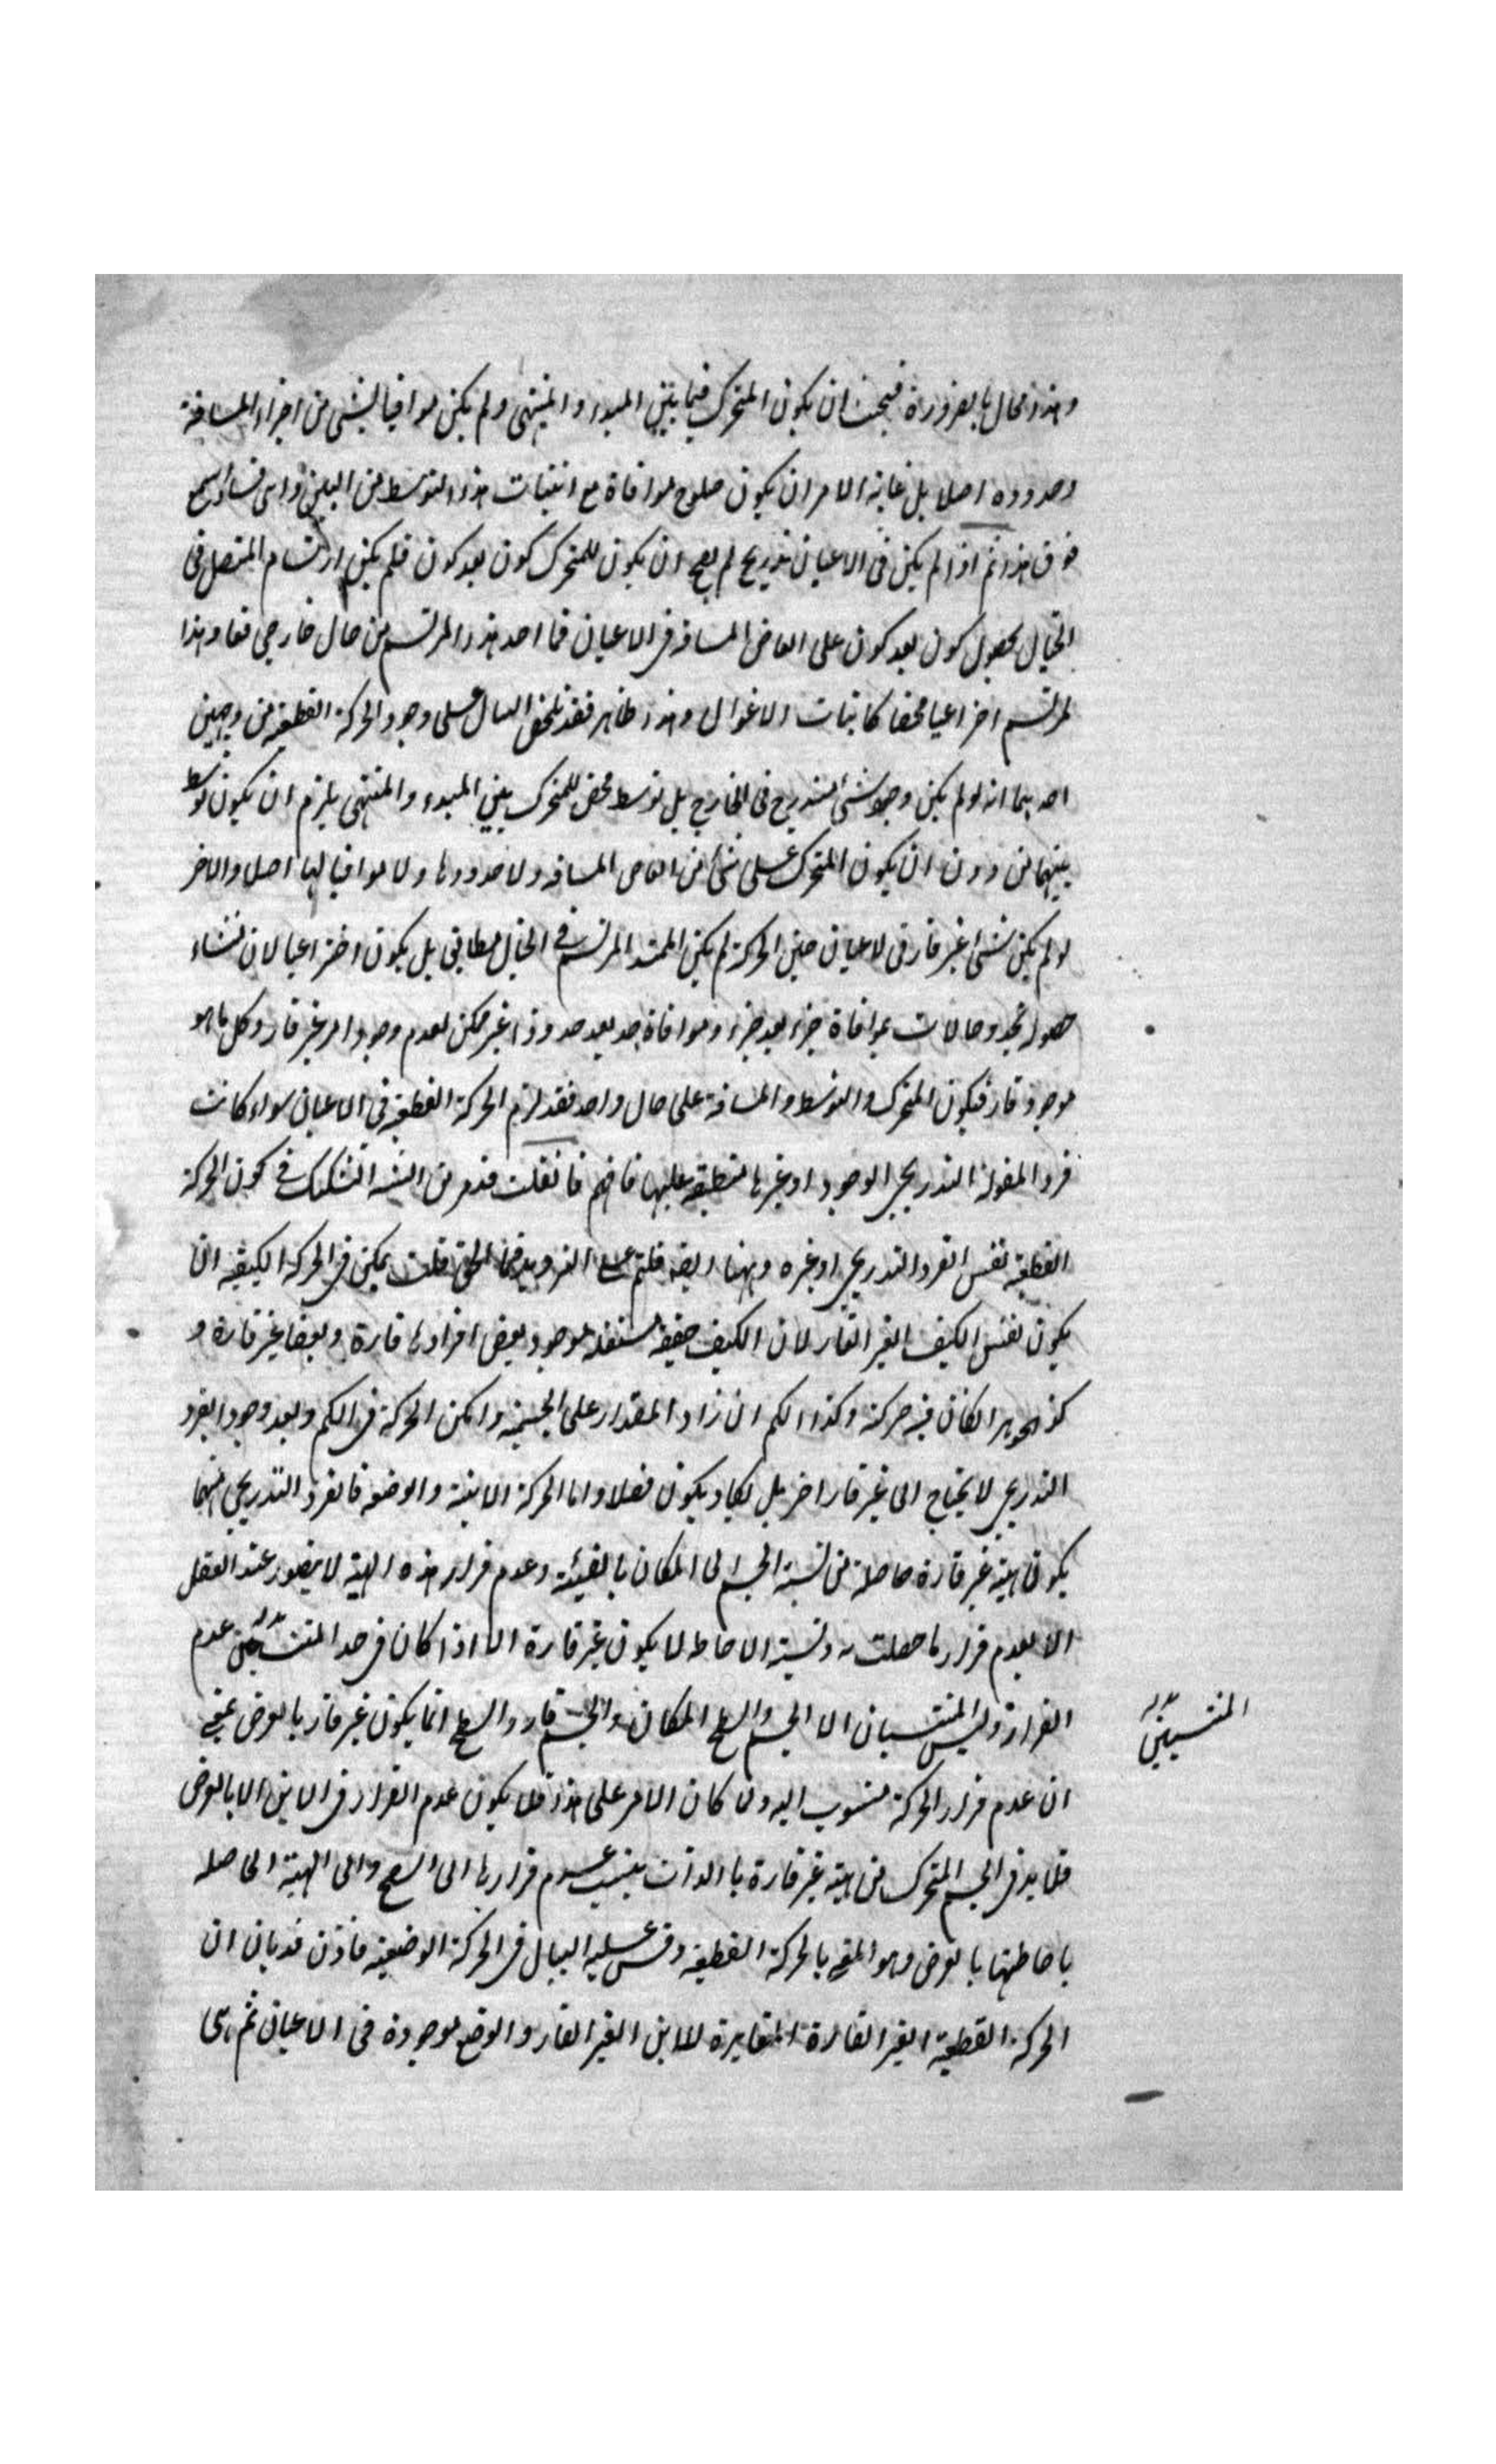 وهذا محال بالضرورة فيجب ان يكون المتحرك فيما بين المبدء والمنتهى ولم يكن موافيا لشئ من اجزاء المسافة
وحدوده اصلا بل غاية الامر ان يكون صلوح موافاة مع انبتات هذا التوسط من البين واى فساد اشنع
فوق هذا ثم اذا لم يكن فى الاعيان تدريج لم يصح ان يكون للمتحرك كون بعد كون فلم يكن ارتسام المتصل فى
الخيال بحصول كون بعد كون على ابعاض المسافة فى الاعيان فما احد هذا المرتسم من حال خارجي فعاد هذا
المرتسم اختراعيا محضا كانياب الاغوال وهذا ظاهر فقد تلخص البيان على وجود الحركة القطعية من وجهين
احدهما انه لو لم يكن وجود شئ لتدريج فى الخارج بل توسط محض للمتحرك بين المبدء والمنتهى يلزم ان يكون توسط
بينهما من دون ان يكون المتحرك على شئ من ابعاض المسافة ولا حدودها ولا موافيا لها اصلا والاخر
لو لم يكن شئ غير قار فى الاعيان حين الحركة لم يكن الممتد المرتسم في الخيال مطابق بل يكون اختراعيا لان منشاء
حصوله تجدد حالات بموافاة جزء بعد جزء وموافاة حد بعد حد وذا غير ممكن لعدم وجود امر غير قار وكل ما هو
موجود قار فيكون المتحرك والتوسط والمسافة على حال واحد فقد لزم الحركة القطعية في الاعيان سواء كانت
فرد المقولة التدريجي الوجود او غيرها منطبقة عليها فافهم فان قلت قد مر من الشيخ التشكيك في كون الحركة
القطعية نفس الفرد التدريجي او غيره وههنا ايضا قلتم على الترديد فما الحق قلت يمكن فى الحركة الكيفية ان
يكون نفس الكيف الغير القار لان الكيف حقيقة مستقلة موجود بعض افرادها قارة وبعضها غير قارة و
كذا الجوهر ان كان فيه حركة وكذا الكم ان زاد المقدار على الجسمية وامكن الحركة فى الكم وبعد وجود الفرد
التدريجي لا يحتاج الى غير قار اخر بل يكاد يكون فضلا واما الحركة الاينية والوضعية فالفرد التدريجي منهما
يكون هيئة غير قارة حاصلة من نسبة الجسم الى المكان بالفيئية وعدم قرار هذه الهيئة لا يتصور عند العقل
الا بعدم قرار ما حصلت به ونسبة الاحاطة لا يكون غير قارة الا اذا كان فى حد المنتسبين عدم
القرار وليس المنتسبان الا الجسم والسطح المكان والجسم قار والسطح انما يكون غير قار بالعرض بمعنى
ان عدم قرار الحركة منسوب اليه ولما كان الامر على هذا فلا يكون عدم القرار فى الاين الا بالعرض
فلا بد فى الجسم المتحرك من هيئة غير قارة بالذات ينسب عدم قرارها الى السطح والى الهيئة الحاصلة
باحاطتها بالعرض وهو المعنى بالحركة القطعية وقس عليه البيان فى الحركة الوضعية فاذن قد بان ان
الحركة القطعية الغير القارة المتغايرة للاين الغير القار والوضع موجودة فى الاعيان ثم هى
المنتسبين